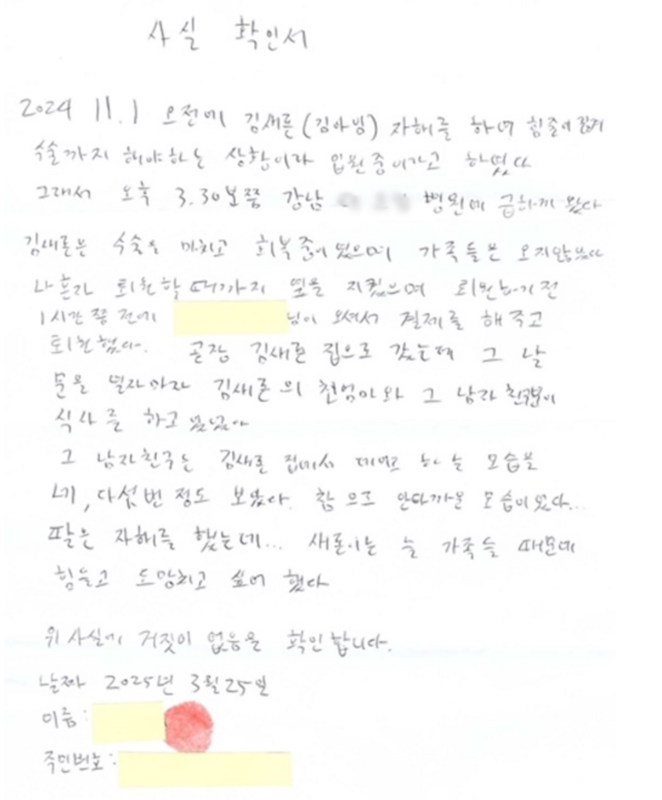 사실 확인서
2024 11.1 오전에 김새론(김아임) 자해를 하여 힘줄이
수술까지 해야하는 상황이라 입원중이라고 하였다
그래서 오후 3.30분쯤 강남 병원에 급하게 왔다
김새론은 수술을 마치고 회복 중이였으며 가족들은 오지않았다
나혼자 퇴원할 때까지 옆을 지켰으며 퇴원하기 전
1시간 쯤 전에 님이 오셔서 결제를 해주고
퇴원했다. 곧장 김새론 집으로 갔는데 그 날
문을 열자마자 김새론의 친엄마와 그 남자친구분이
식사를 하고 있었다
그 남자친구는 김새론 집에서 하는 모습을
네, 다섯번 정도 보았다. 참으로 안타까운 모습이였다...
팔은 자해를 했는데... 새론이는 늘 가족들 때문에
힘들고 도망치고 싶어 했다
위 사실에 거짓이 없음을 확인합니다.
날짜 2025년 3월 25일
이름:
주민번호: